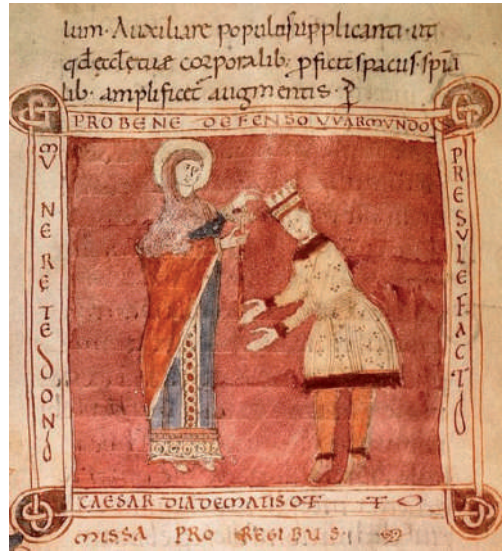 Auxiliare populo supplicanti ut
corporalib· pficit
lib· amplificet augmentis·
PRO BENE DEFENSO VVARMVNDO
PRESVLE FACTO
MVNERE TE DONO
CAESAR DIADEMATIS OTTO
MISSA PRO REGIBUS·